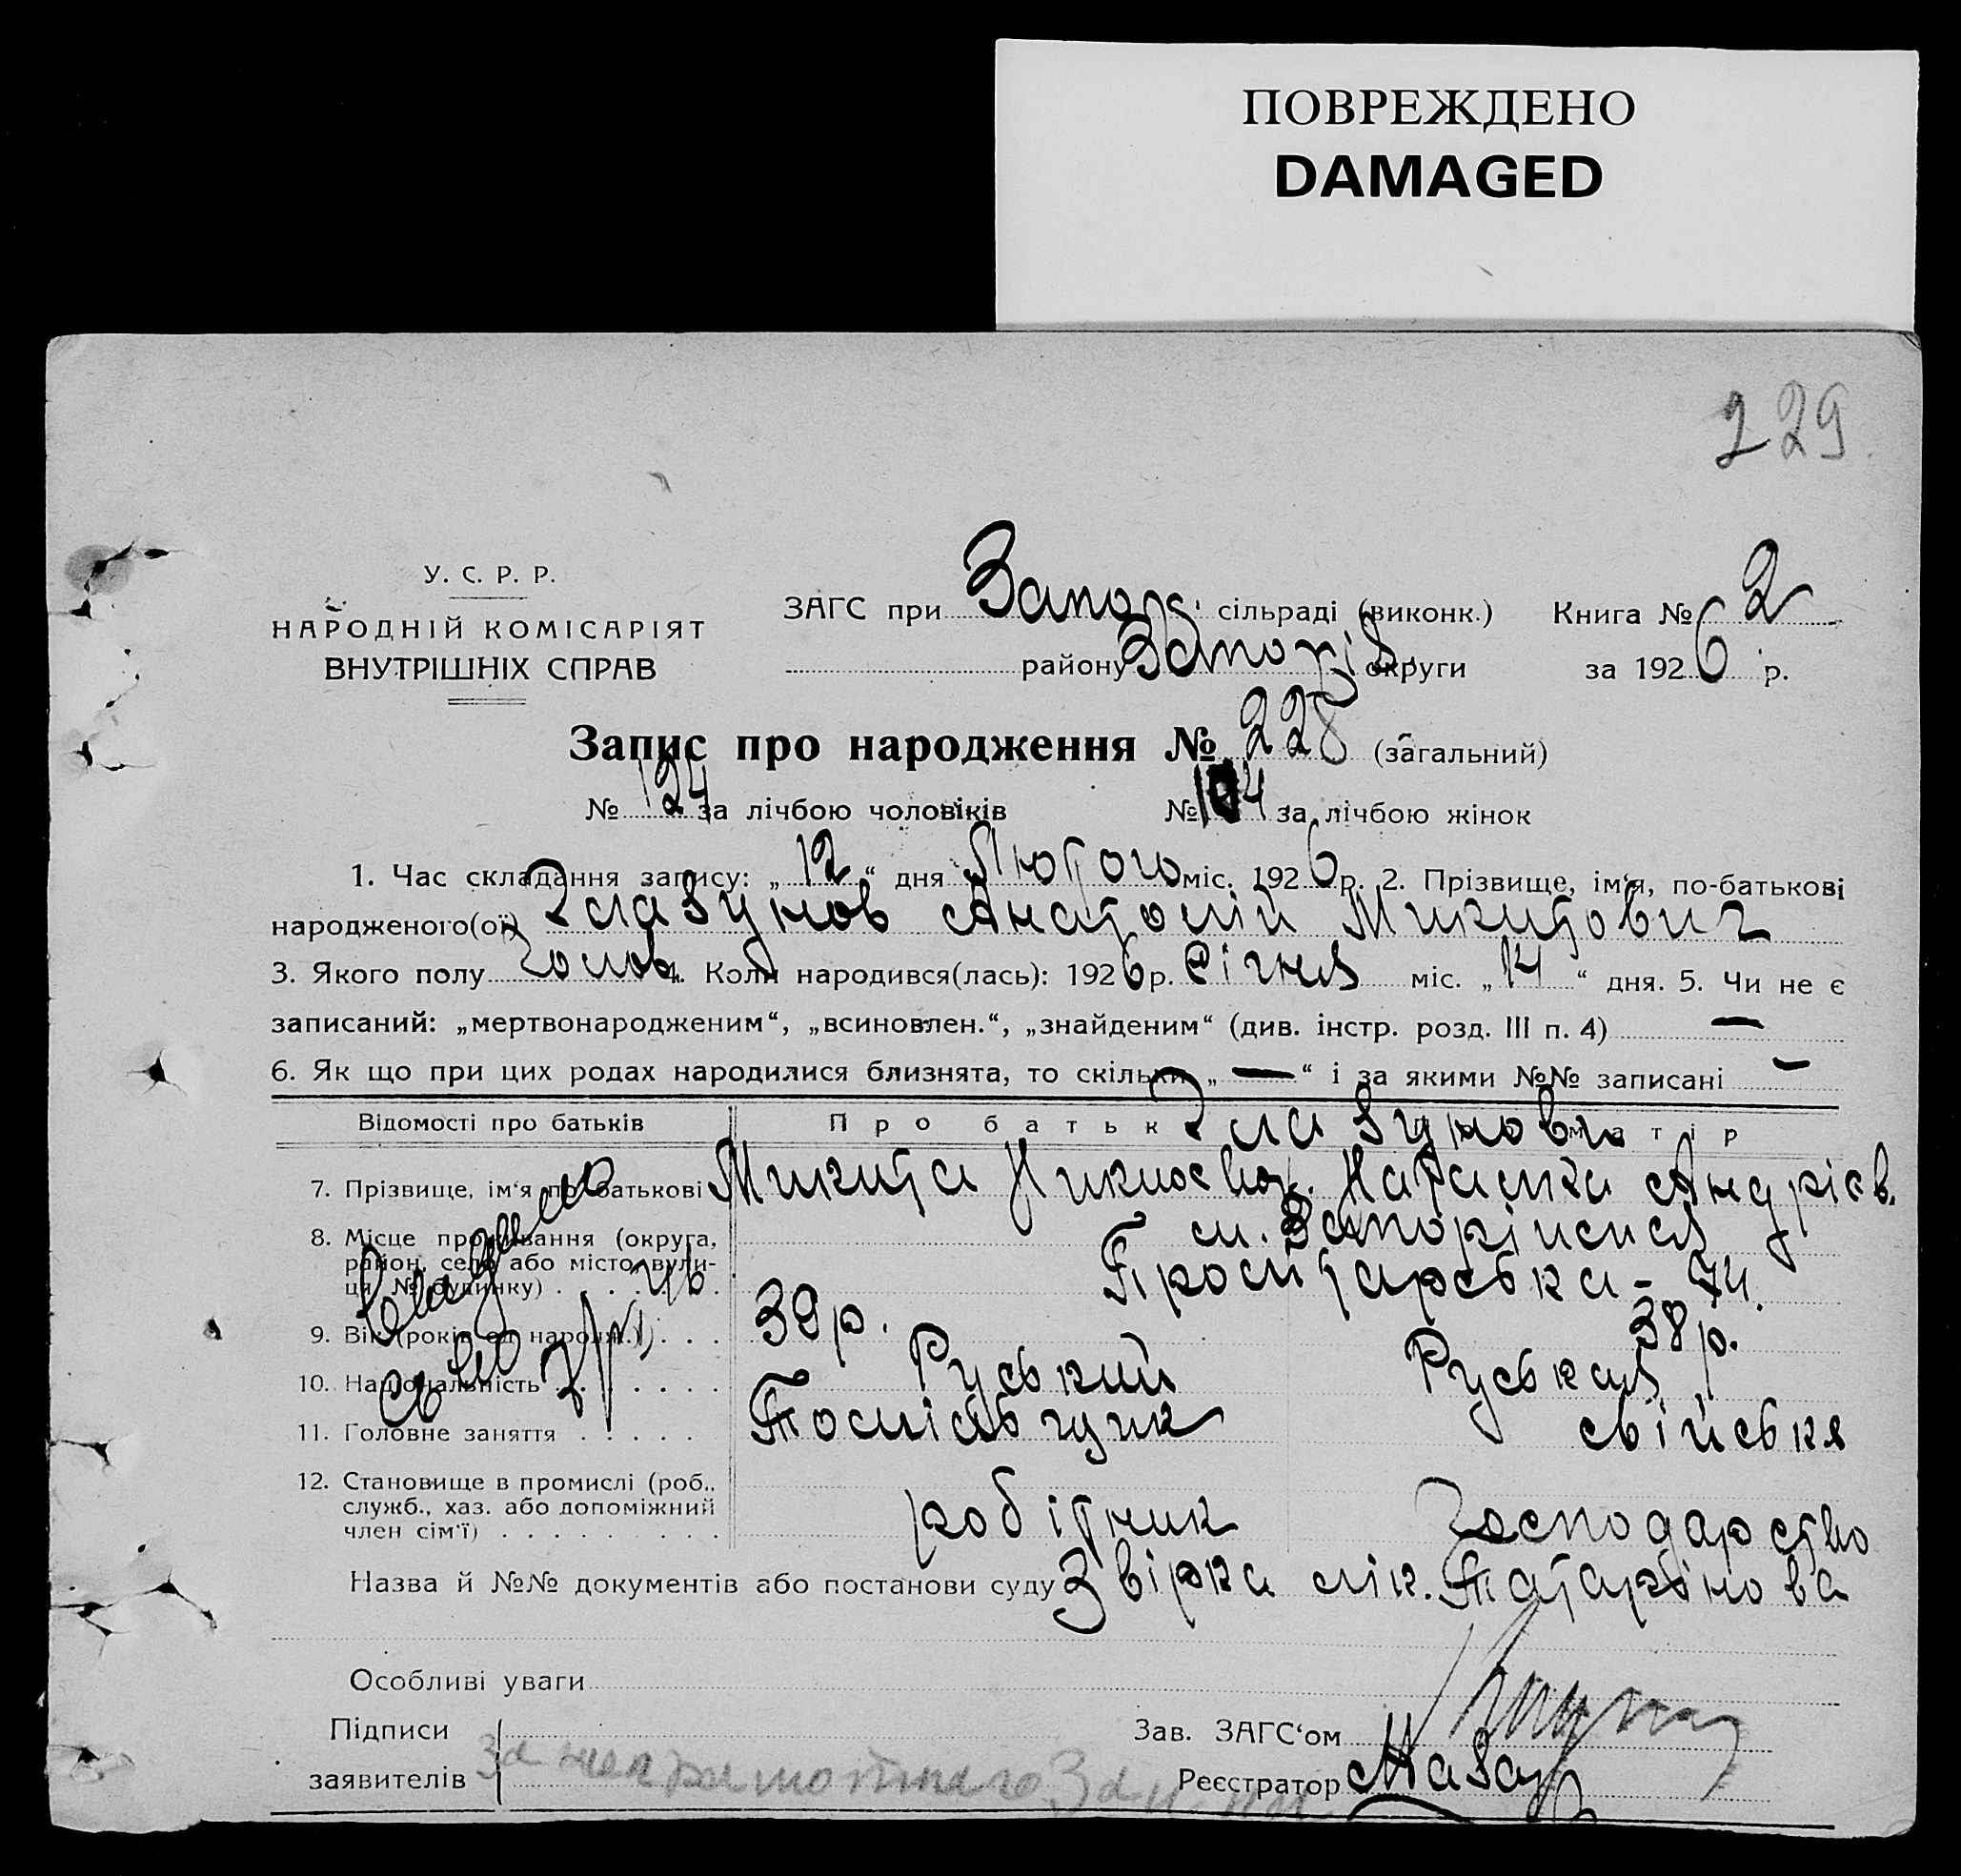 ПОВРЕЖДЕНО
DAMAGED
229
У. С. Р. Р.
НАРОДНІЙ КОМІСАРІЯТ
ВНУТРІШНІХ СПРАВ
ЗАГС при Запор. сільраді (виконк.) Книга № 2
району Запоріз. округи за 1926 р.
Запис про народження № 228 (загальний)
№ 124 за лічбою чоловіків № 104 за лічбою жінок
1. Час складання запису: „ 12 “ дня Лютого міс. 1926 р. 2. Прізвище, ім'я, по-батькові
народженого(ої) Глазунов Анатолій Микитович
3. Якого полу Чолов. 4. Коли народився(лась): 1926 р. Січня міс. „ 14 “ дня. 5. Чи не є
записаний: „мертвонародженим“, „всиновлен.“, „знайденим“ (див. інстр. розд. III п. 4) —
6. Як що при цих родах народилися близнята, то скільки „ — “ і за якими №№ записані —
Відомості про батьків Про батьк Глазунови матір
7. Прізвище, ім'я по-батькові Микита Наталка Андрієв.
8. Місце проживання (округа, м. Запоріжжя
район, село або місто, вули-
ця № будинку) Пролітарська - 74.
9. Вік (років од народж.) 39 р. 38 р.
10. Національність Руський Руськая
11. Головне заняття свійське
12. Становище в промислі (роб.,
служб., хаз. або допоміжний
член сім'ї) робітник господарство
Назва й №№ документів або постанови суду Звірка лік. Татарінова
Особливі уваги
Підписи
Зав. ЗАГС'ом
заявителів За неграмотного
Реєстратор